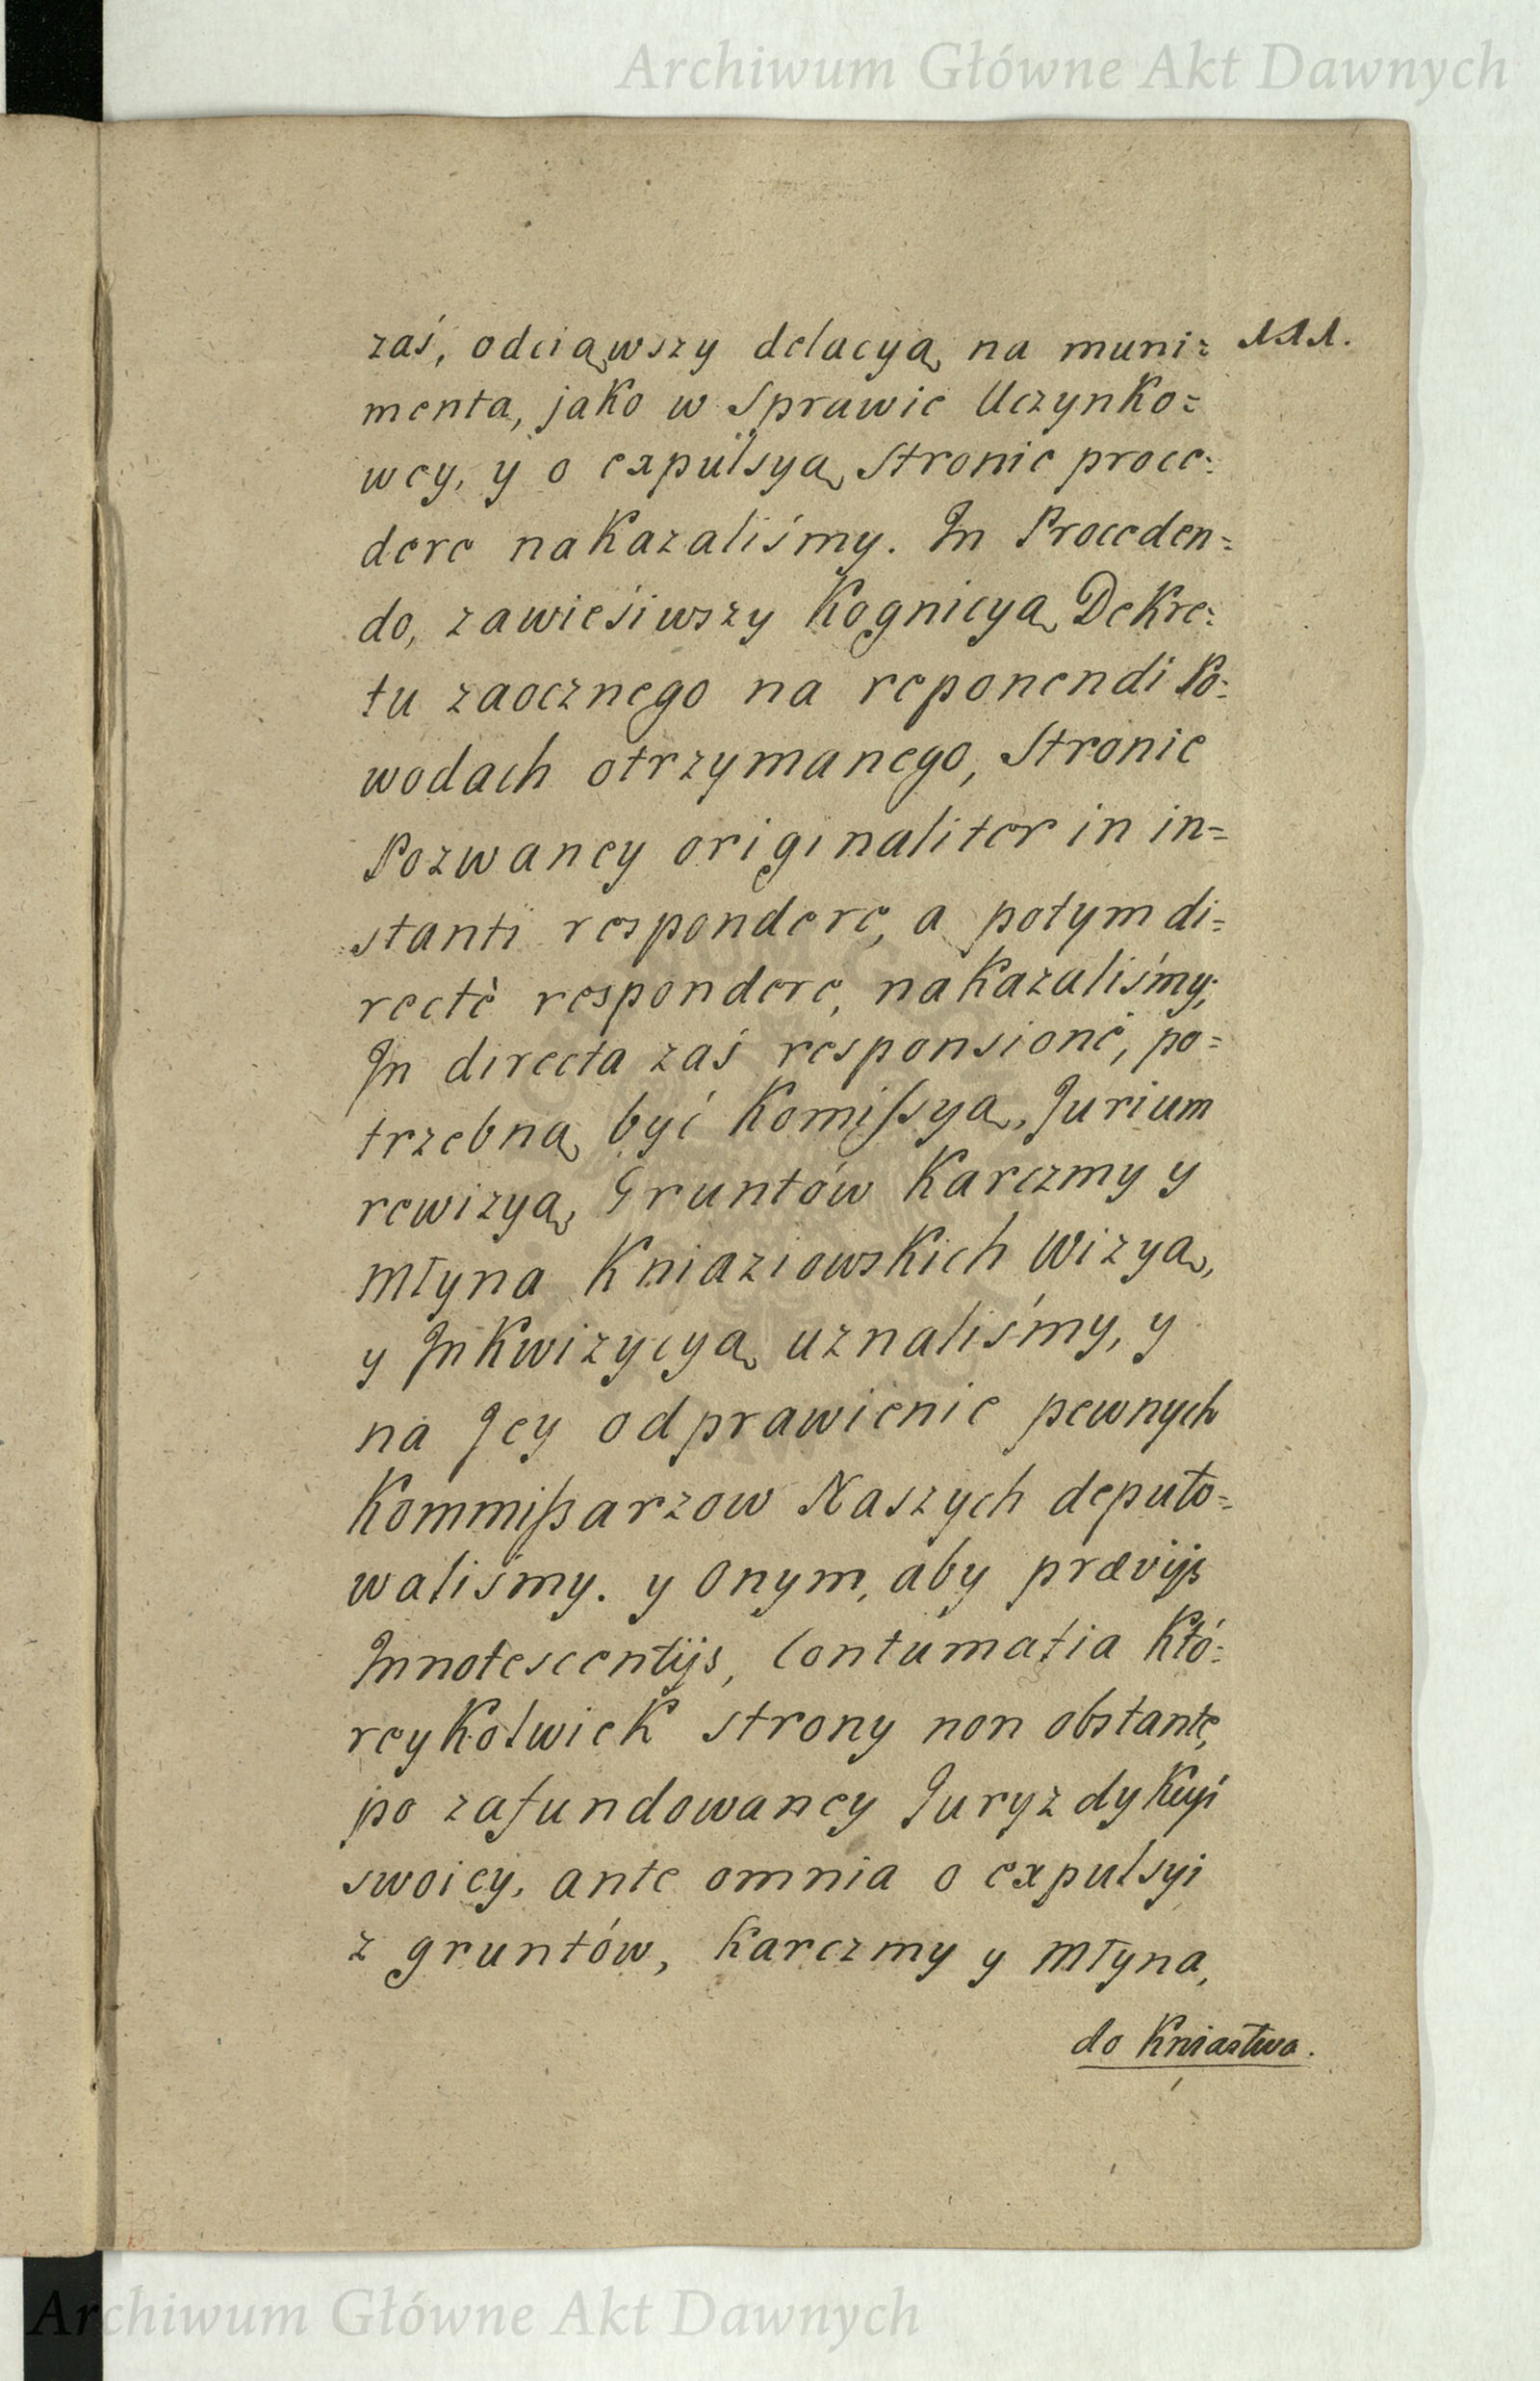 Archiwum Główne Akt Dawnych
zaś, odciąwszy delacyą na muni= 111.
menta, jako w Sprawie Uczynko=
wey, y o expulsyą Stronie proce=
dere nakazaliśmy. In Proceden=
do, zawieśiwszy Kognicyą Dekre=
tu zaocznego na reponendi Po=
wodach otrzymanego, Stronie
Pozwaney originaliter in in=
stanti respondere, a potym di=
rectè respondere, nakazaliśmy;
In directa zaś responsione, po=
trzebną być Komissyą, Jurium
rewizyą, Gruntów Karczmy y
Młyna Kniaziowskich Wizyą,
y Inkwizycyą uznaliśmy, y
na Jey odprawienie pewnych
Kommissarzow Naszych deputo=
waliśmy. y Onym, aby prævijs
Innotescentijs, Contumatia któ=
reykolwiek strony non obstante,
po zafundowaney Juryzdykcyi
swoiey, ante omnia o expulsyi
z gruntów, Karczmy y Młyna,
do Kniastwa.
Archiwum Główne Akt Dawnych